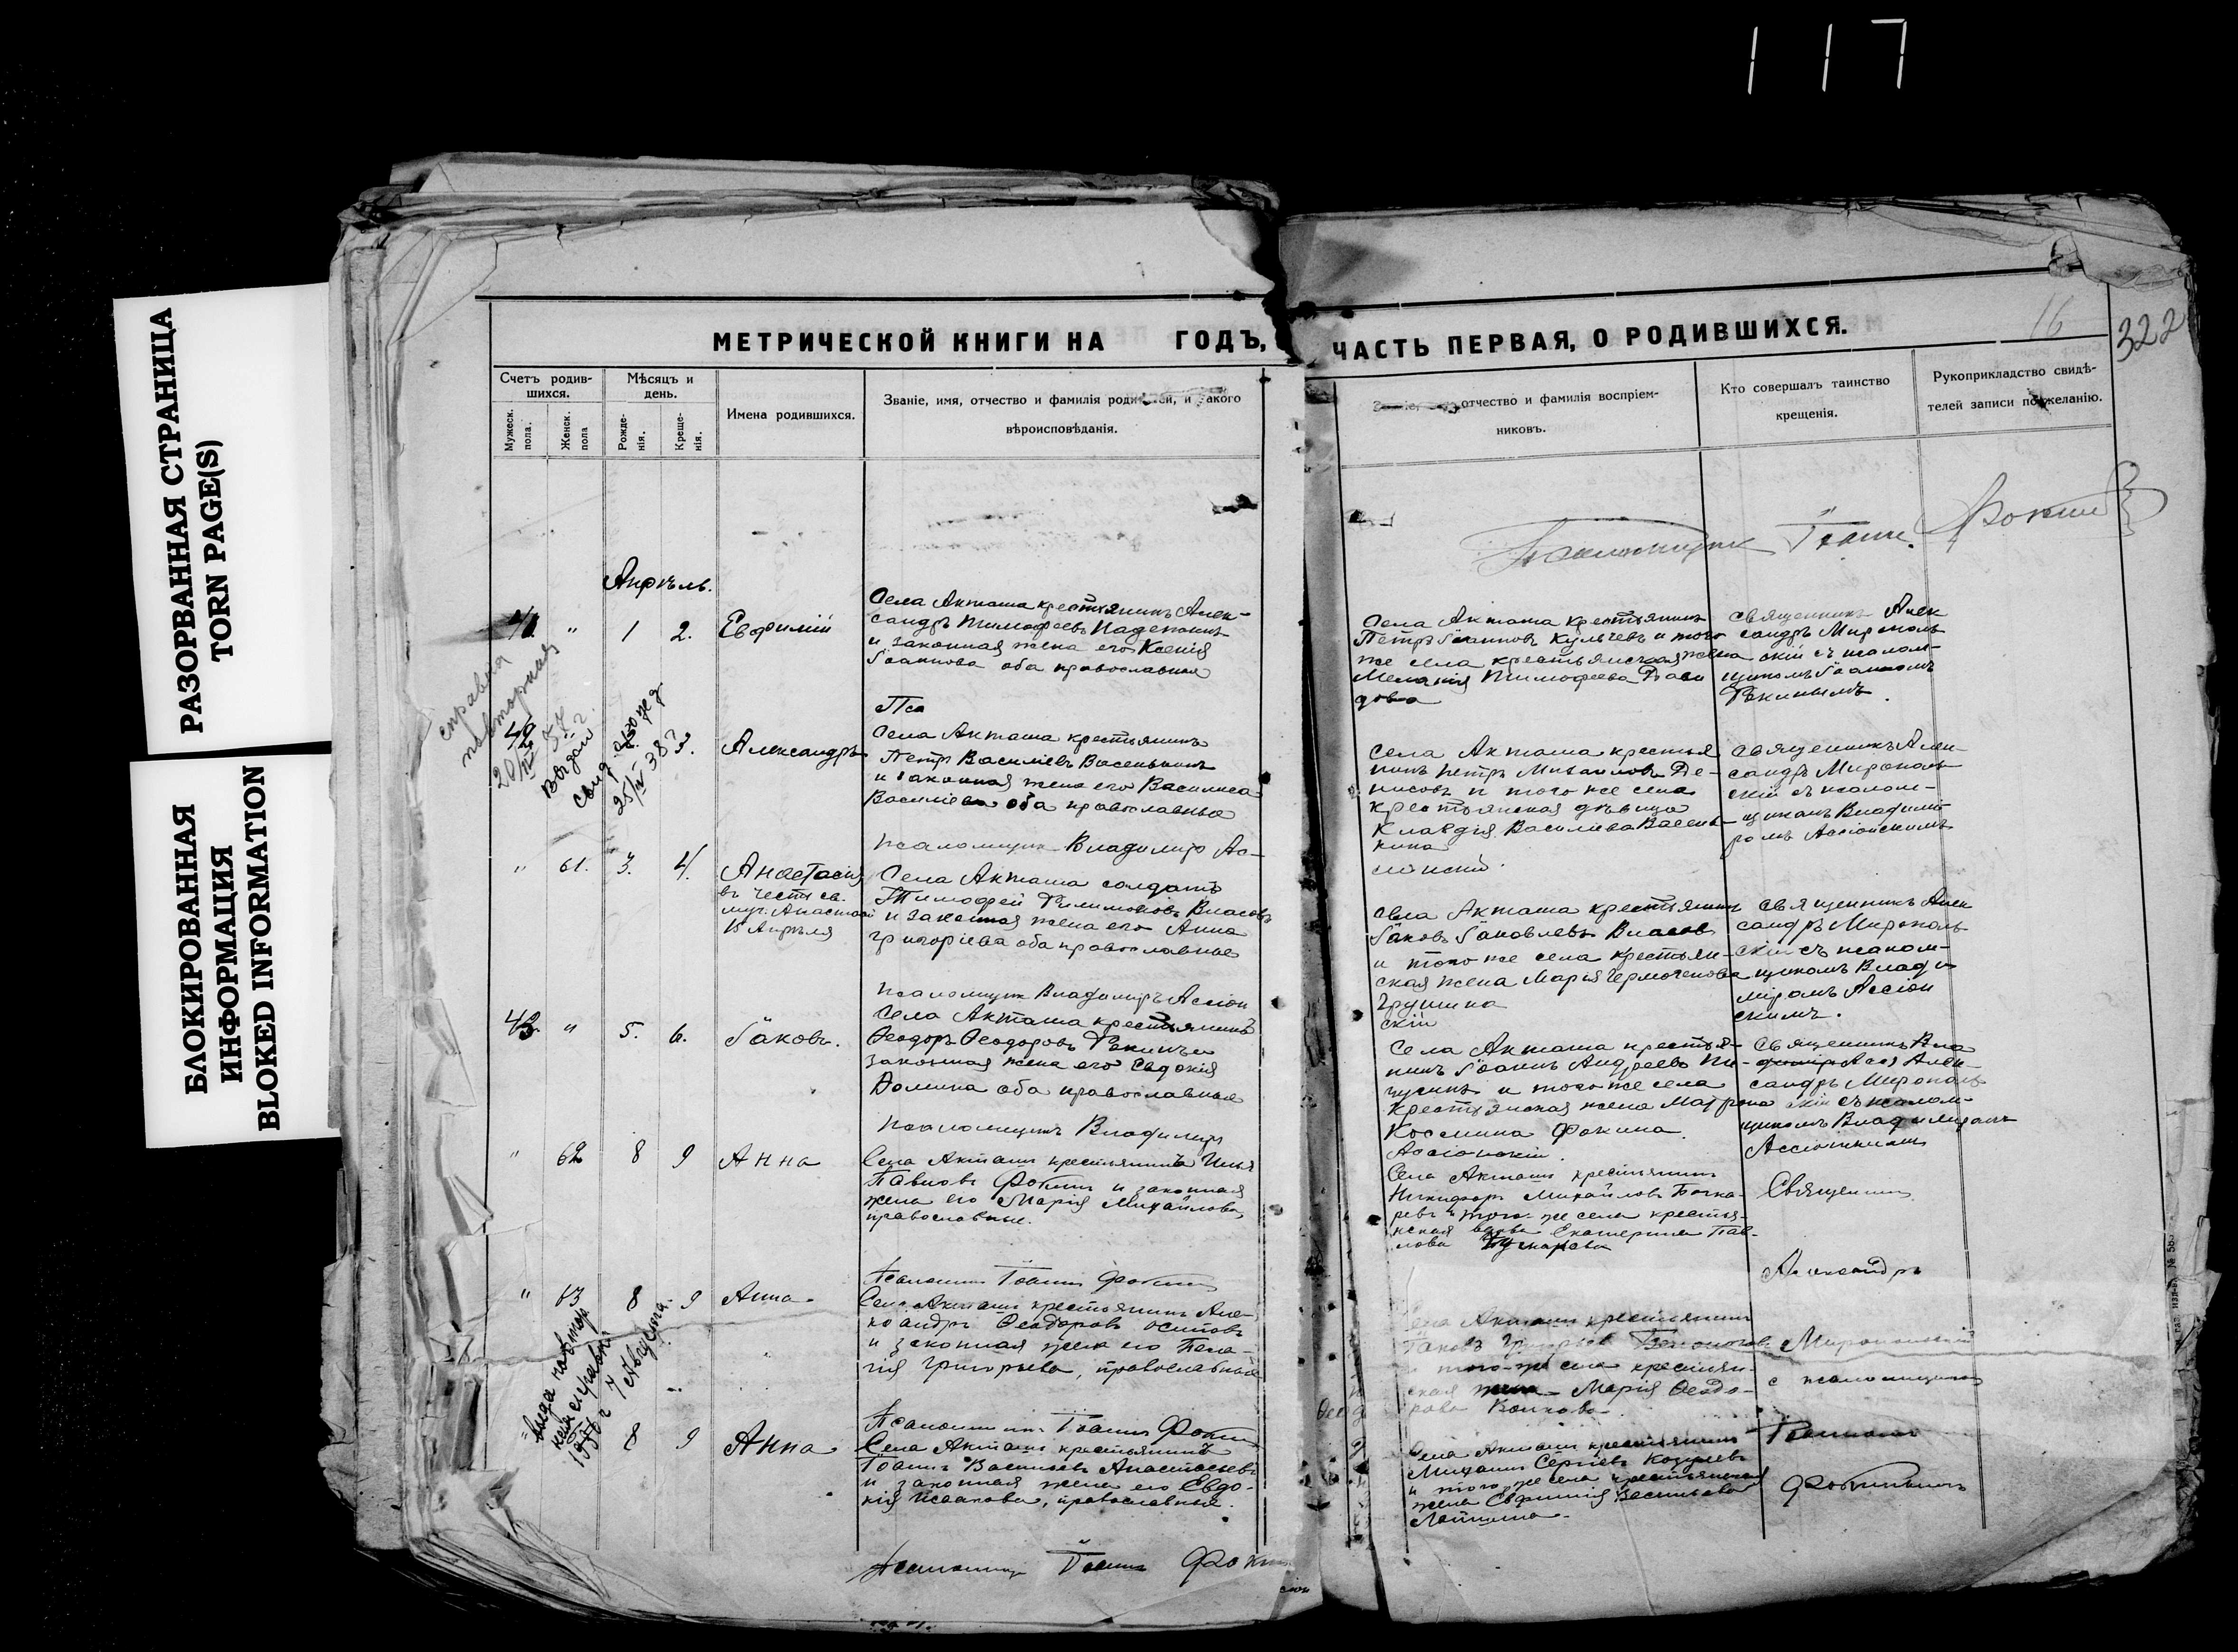 117
РАЗОРВАННАЯ СТРАНИЦА
TORN PAGE(S)
БЛОКИРОВАННАЯ
ИНФОРМАЦИЯ
BLOKED INFORMATION
16
322
МЕТРИЧЕСКОЙ КНИГИ НА ГОДЪ, ЧАСТЬ ПЕРВАЯ, О РОДИВШИХСЯ.
Счетъ родив-
шихся.
Мужеск.
пола.
Женск.
пола
Мѣсяцъ и
день.
Рожде-
нія.
Креще-
нія.
Имена родившихся.
Званіе, имя, отчество и фамилія родителей, и какого
вѣроисповѣданія.
отчество и фамилія воспріем-
никовъ.
Кто совершалъ таинство
крещенія.
Рукоприкладство свидѣ-
телей записи по желанію.
Псаломщик Іоанн Фокин
Апрѣль.
41. " 1 2. Евфимій
Села Акташа крестьянинъ Алек-
сандръ Тимофеевъ
и законная жена его Ксенія
Іоаннова оба православные
Села Акташа крестьянинъ
Петръ Іоаннов Кульчевъ и того
же села крестьянская жена
Меланія Тимофеева Дави
дова
священникъ Алек
сандръ Мирополь
скій съ псалом-
щикомъ Іоанномъ
Фокинымъ.
справка
повторная
Пса
42 3. Александръ
Села Акташа крестьянинъ
Петръ Василіевъ Васенькинъ
и законная жена его Василиса
Василіева оба православные
Села Акташа крестья
нинъ Петръ Михаилов Де-
нисовъ и того же села
крестьянская дѣвица
Клавдія Василіева Васень-
кина
Священникъ Алек-
сандръ Мирополь
скій съ псалом-
щикомъ Владими
ромъ Ассіонскимъ
псаломщик Владимир Ас-
сіонскій.
" 61. 3. 4. Анастасія
въ честь св.
муч. Анастасіи
15 Апрѣля
Села Акташа солдатъ
Тимофей Филимоновъ Власовъ
и законная жена его Анна
Григорьева оба православные
Села Акташа крестьянинъ
Іаковъ Іаковлевъ Власов
и того же села крестьян-
ская жена Марія
Грушина
священникъ Алек
сандръ Мирополь
скій съ псалом-
щикомъ Влади
міромъ Ассіон
скимъ.
псаломщик Владиміръ Ассіон
скій
43. " 5. 6. Іаковъ.
Села Акташа крестьянинъ
Ѳеодоръ Ѳеодоровъ Фокинъ и
законная жена его Евдокія
Домина оба православные
Села Акташа крестья-
нинъ Іоаннъ Андреевъ Пи-
чугинъ и того же села
крестьянская жена Матрона
Космина Фокина.
Священникъ Вла
Алек-
сандръ Мирополь
скій съ псалом-
щикомъ Владимиромъ
Ассіонскимъ
Псаломщикъ Владимиръ
Ассіонскій.
" 62 8 9 Анна
Села Акташа крестьянинъ Илья
Павловъ Фокинъ и законная
жена его Марія Михайлова,
православные.
Села Акташа крестьянинъ
Никифоръ Михайловъ Бочка-
ревъ и того же села крестья-
нская вдова Екатерина Пав-
лова
Священникъ
Псаломщикъ Іоаннъ Фокинъ
Александръ
" 63 8 9 Анна.
Села Акташа крестьянинъ Але-
ксандръ Ѳеодоровъ Осиповъ
и законная жена его Пела-
гія Григорьева, православные
Села Акташа крестьянинъ
Іаковъ
и того-же села крестьян-
ская жена Марія Ѳеодо-
рова Волкова.
Миропольскій
с псаломщикомъ
7 Августа
Псаломщикъ Іоаннъ Фокинъ
8 9 Анна
Села Акташа крестьянинъ
Іоаннъ Васильевъ Анастасьевъ
и законная жена его Евдо-
кія Исаакова, православные.
Села Акташа крестьянинъ
Михаилъ Сергѣевъ
и того же села крестьянская
жена Евфимія Васильева
Іоанномъ
Фокинымъ
Псаломщикъ Іоаннъ Фокин